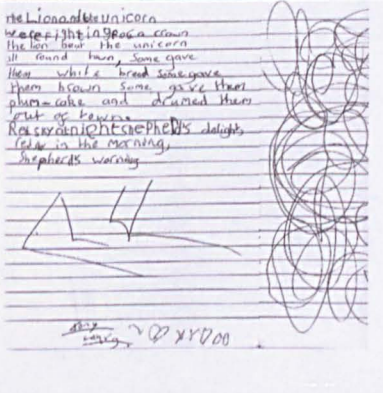 the Lion and the Unicorn
were fighting for a crown
the lion beat the unicorn
all round town, Some gave
them white bread some gave
them brown Some gave them
plum-cake and drumed them
out of town.
Red sky at night shepherds delight,
in the morning,
Shepherds warning